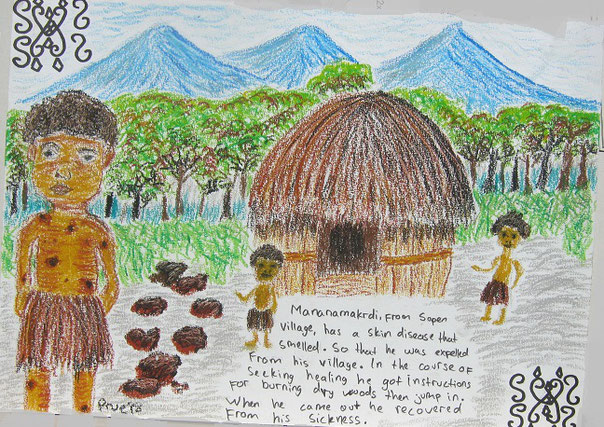 Mananamakrdi, From Sopen
village, has a skin disease that
smelled. So that he was expelled
From his village. In the course of
secking healing he got instructions
For burning dry woods then jump in.
When he came out he recovered
From his sickness.